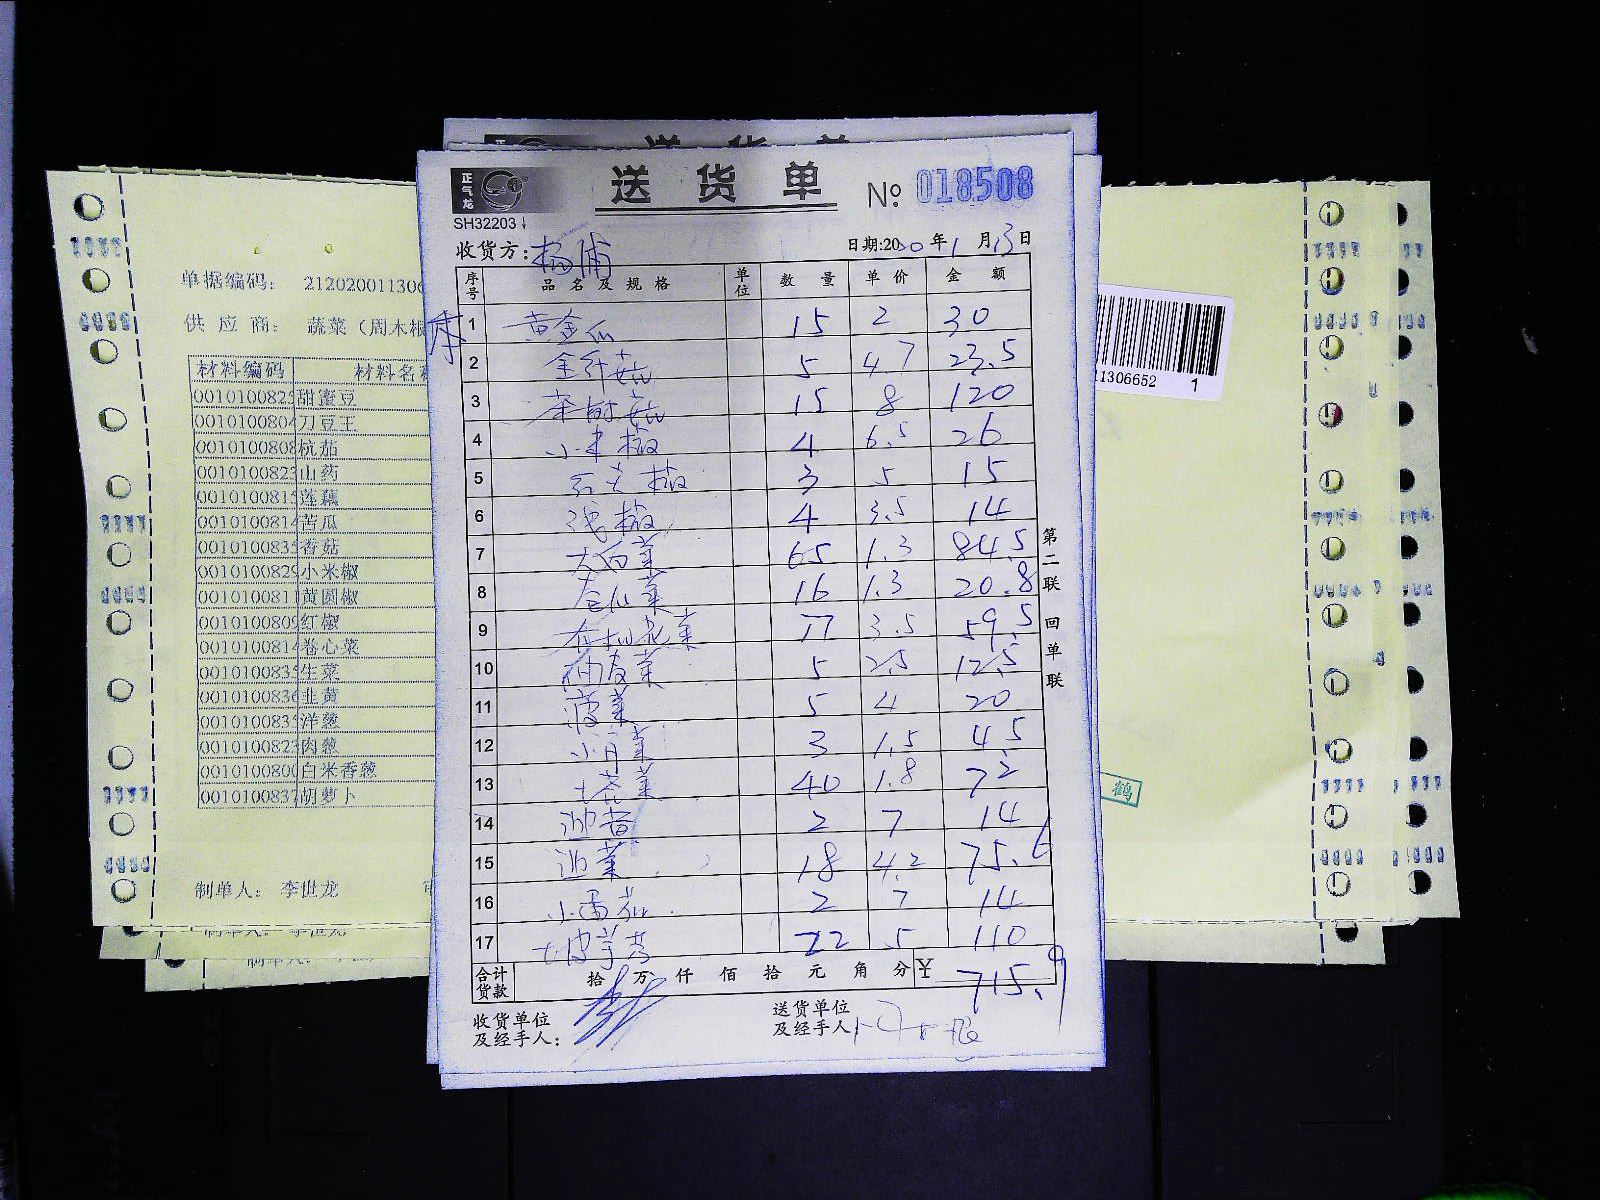 送 货 单
正气龙
送 货 单
№ 018508
SH32203
收货方: 杨浦
日期:2020年1月13日
序号 品名及规格 单位 数量 单价 金额
1 黄金瓜 15 2 30
2 金针菇 5 4.7 23.5
3 茶树菇 15 8 120
4 小米椒 4 6.5 26
5 椒 3 5 15
6 线椒 4 3.5 14
7 大白菜 65 1.3 84.5
8 包心菜 16 1.3 20.8
9 有机花菜 17 3.5 59.5
10 菜 5 2.5 12.5
11 菠菜 5 4 20
12 小青菜 3 1.5 4.5
13 菜 40 1.8 72
14 2 7 14
15 菜 18 4.2 75.6
16 小番茄 2 7 14
17 22 5 110
合计货款 拾 万 仟 佰 拾 元 角 分 ¥ 715.9
收货单位及经手人:
送货单位及经手人
第二联 回单联
单据编码: 21202001130
供 应 商: 蔬菜(周木根
材料编码 材料名
001010082 甜蜜豆
001010080 刀豆王
001010080 杭茄
001010082 山药
001010081 莲藕
001010081 苦瓜
001010083 香菇
001010082 小米椒
001010081 黄圆椒
001010080 红椒
001010081 卷心菜
001010083 生菜
001010083 韭黄
001010083 洋葱
001010082 肉葱
001010080 白米香葱
001010083 胡萝卜
制单人: 李世龙
制单人: 李世龙
制单人:
11306652 1
鹤